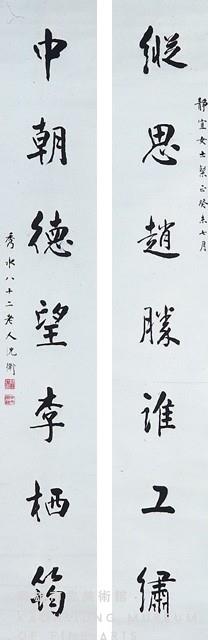 靜宜女士粲正癸未七月
縱思趙勝誰工繡
中朝德望李栖筠
秀水八十二老人沈衛
高雄市立美術館
KAOHSIUNG MUSEUM
OF FINE ARTS